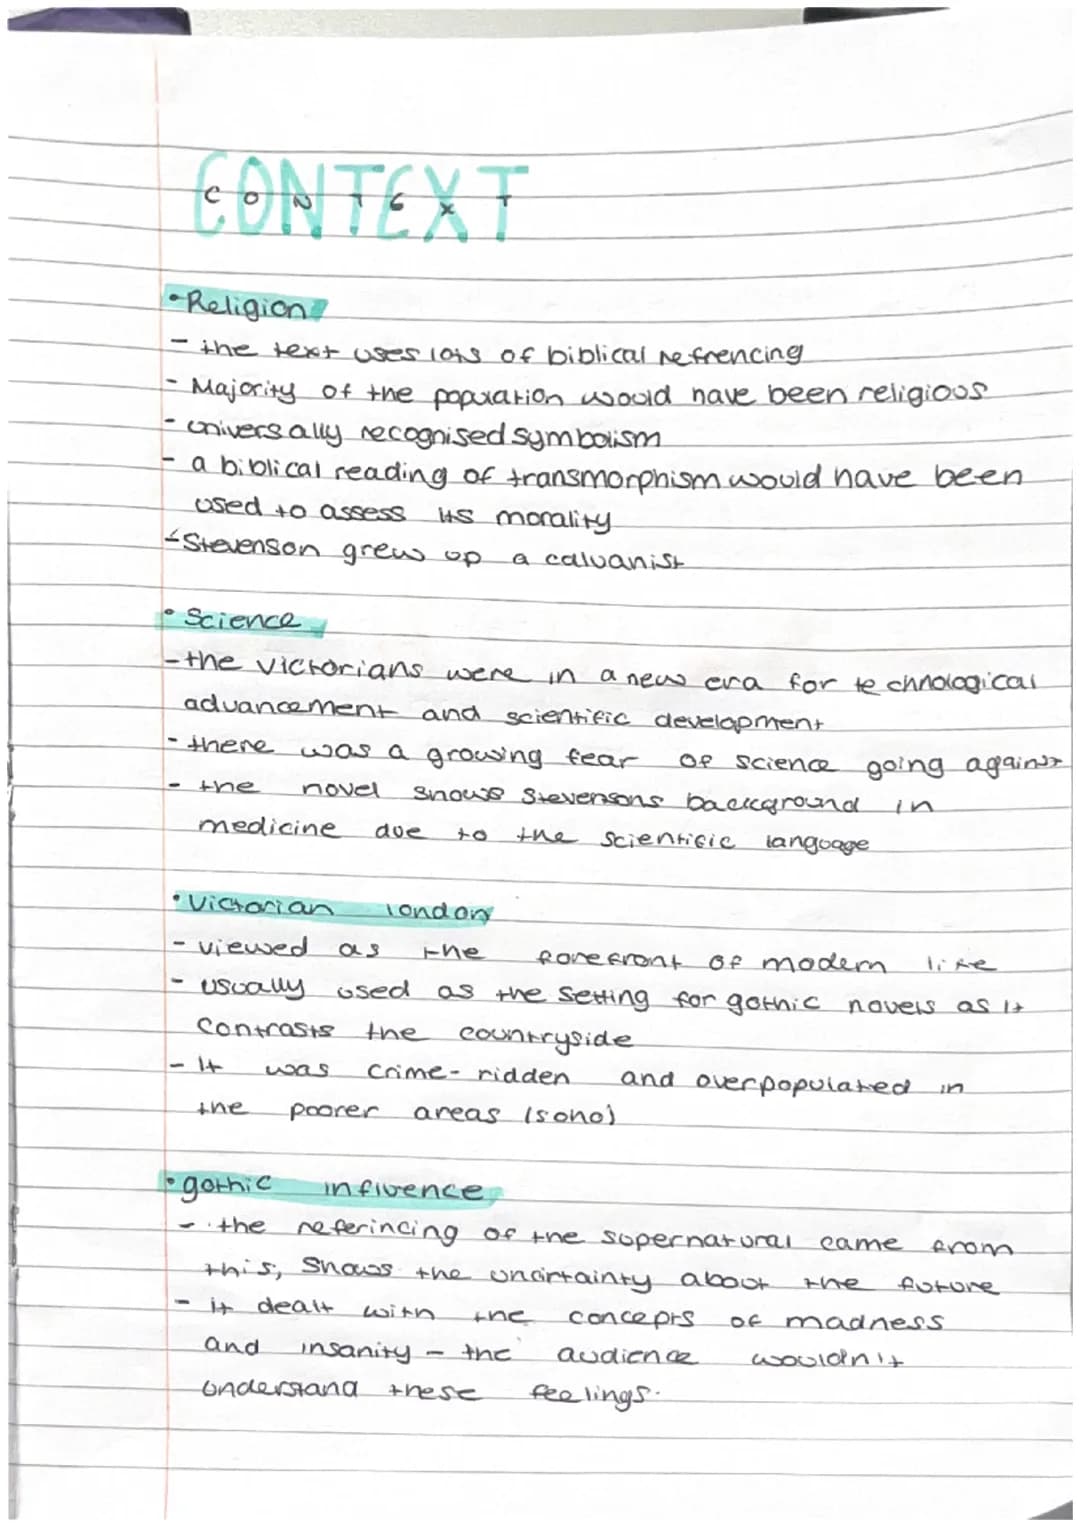 CONTEXT
• Religion
- the text uses lots of biblical refrencing
- Majority of the population would have been religious
- universally recognised symbolism
- a biblical reading of transmorphism would have been
used to assess its morality
- Stevenson grew up a calvanist
• Science
- the victorians were in a new era for technological
advancement and scientific development
- there was a growing fear of science going against
- the novel shows Stevensons background in
medicine due to the scientific language
• Victorian london
- viewed as the forefront of modern life
- usually used as the setting for gothic novels as it
contrasts the countryside
- It was crime-ridden and overpopulated in
the poorer areas (soho)
• gothic influence
- the referincing of the supernatural came from
this, shows the uncirtainty about the future
- it dealt with the concepts of madness
and insanity - the audience wouldn't
understand these feelings.